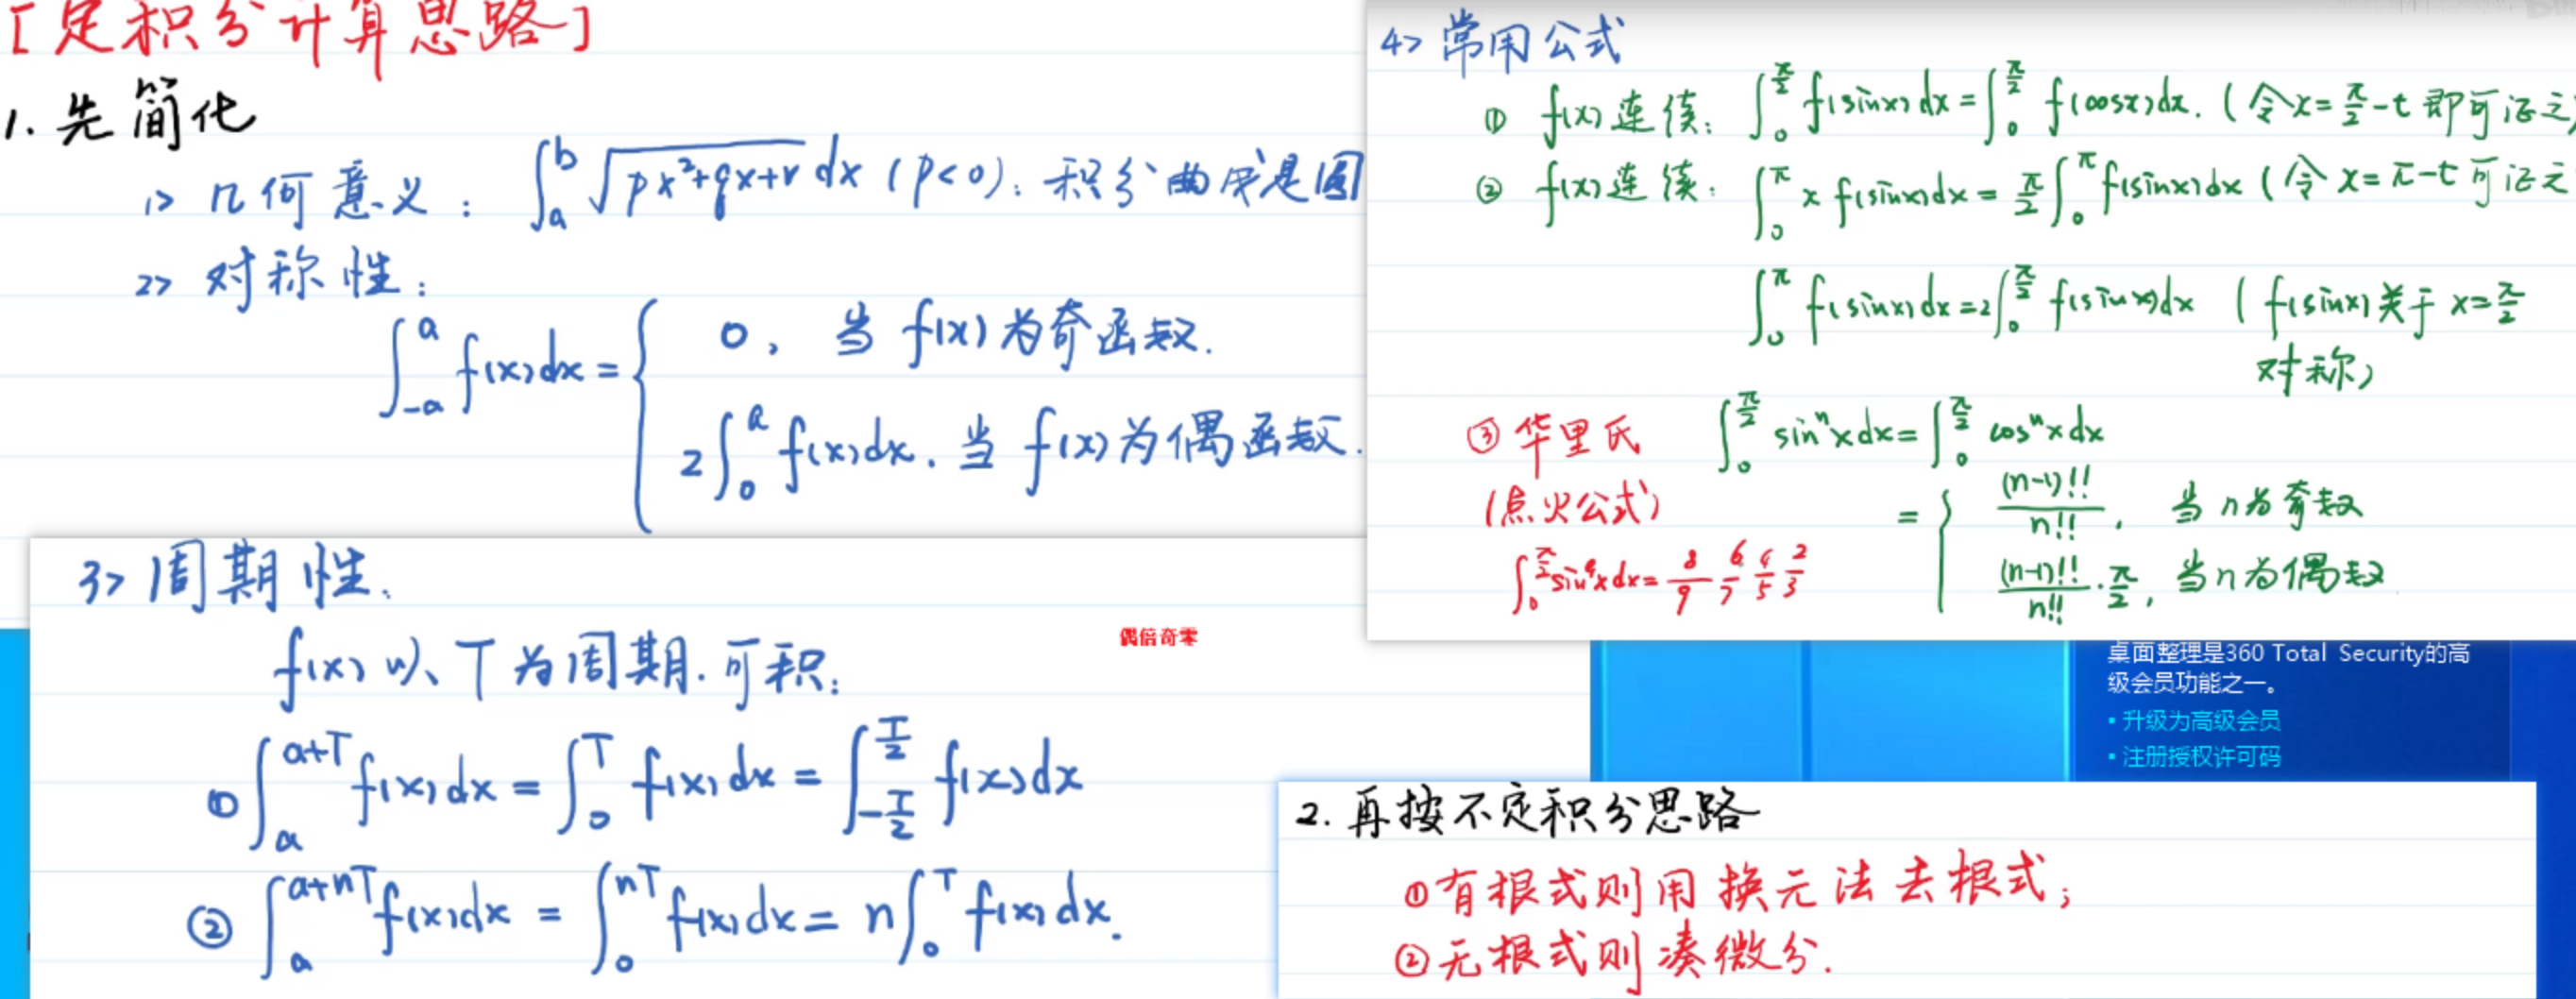 [定积分计算思路]
1. 先简化
1> 几何意义: ∫_a^b √(px²+qx+r) dx (p<0): 积分曲线是圆
2> 对称性:
∫_{-a}^a f(x)dx = { 0, 当 f(x) 为奇函数.
2∫_0^a f(x)dx. 当 f(x) 为偶函数.
3> 周期性.
偶倍奇零
f(x) 以 T 为周期. 可积:
① ∫_a^{a+T} f(x)dx = ∫_0^T f(x)dx = ∫_{-T/2}^{T/2} f(x)dx
② ∫_a^{a+nT} f(x)dx = ∫_0^{nT} f(x)dx = n∫_0^T f(x)dx.
4> 常用公式
① f(x) 连续: ∫_0^{π/2} f(sinx)dx = ∫_0^{π/2} f(cosx)dx. (令 x=π/2-t 即可证之)
② f(x) 连续: ∫_0^π x f(sinx)dx = π/2 ∫_0^π f(sinx)dx (令 x=π-t 可证之
∫_0^π f(sinx)dx = 2∫_0^{π/2} f(sinx)dx ( f(sinx) 关于 x=π/2
对称)
③ 华里氏 ∫_0^{π/2} sin^n x dx = ∫_0^{π/2} cos^n x dx
(点火公式) = { (n-1)!!/n!!, 当 n 为奇数
∫_0^{π/2} sin^9 x dx = 8/9 6/7 4/5 2/3 (n-1)!!/n!! · π/2, 当 n 为偶数
桌面整理是360 Total Security的高
级会员功能之一。
• 升级为高级会员
• 注册授权许可码
2. 再按不定积分思路
① 有根式则用换元法去根式;
② 无根式则凑微分.